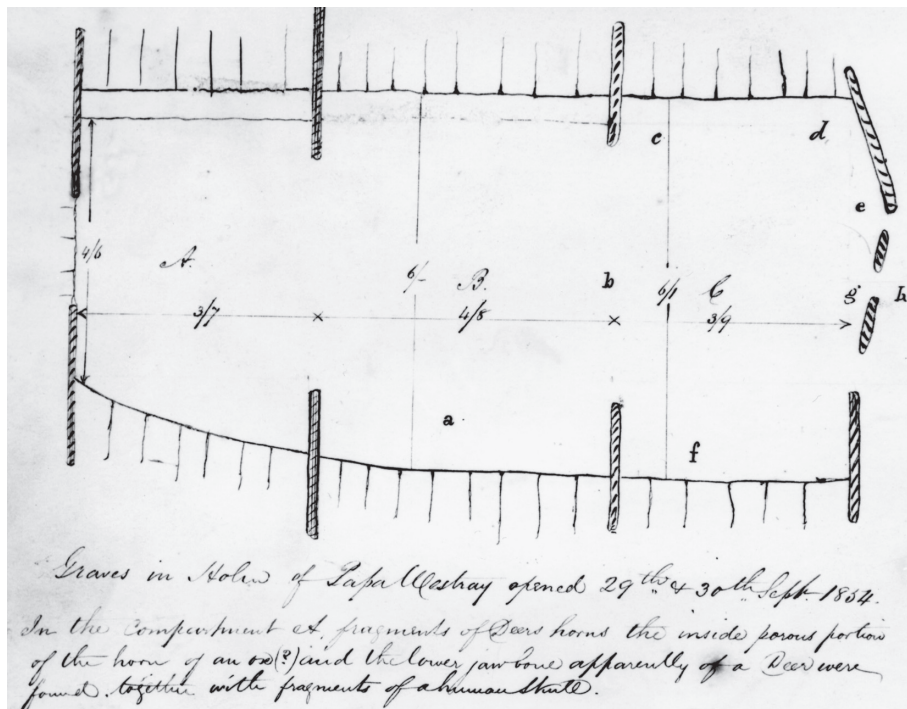 c
d
e
4/6
A.
6/-
B.
b
6/1
C
g
h
3/7
4/8
3/9
a
f
Graves in Holm of Papa Westray opened 29th & 30th Sept. 1854.
In the compartment A fragments of Deers horns the inside porous portion
of the horn of an ox(?) and the lower jaw bone apparently of a Deer were
found together with fragments of a human skull.